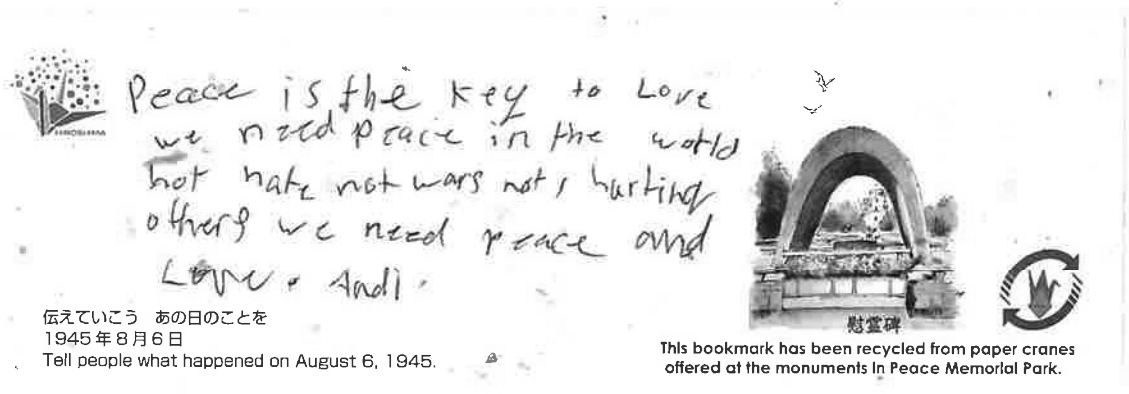 HIROSHIMA
Peace is the key to Love
we need peace in the world
not hate not wars not hurting
others we need peace and
Love. Andi.
伝えていこう あの日のことを
1945年8月6日
Tell people what happened on August 6, 1945.
慰霊碑
This bookmark has been recycled from paper cranes
offered at the monuments in Peace Memorial Park.